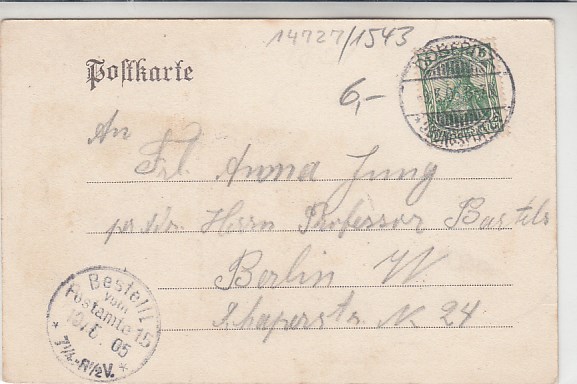 14727/1543
Postkarte
6,-
An
Frl. Anna Jung
Herrn Professor Bartels
Berlin W.
Schaperstr. No 24
Bestellt
vom
Postamte 15
10/5. 05
* 7¼-8½V. *